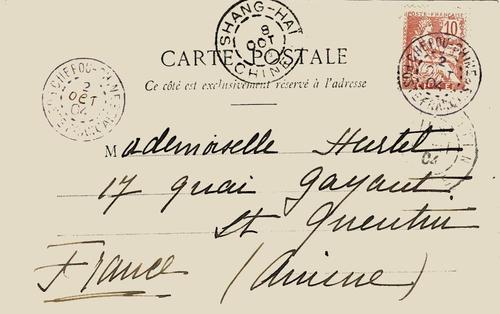 SHANG-HAI
8
OCT
CHINE
POSTE FRANÇAISE
10
CARTE POSTALE
Ce côté est exclusivement réservé à l'adresse
CHEFOU-CHINE
2
OCT
04
POSTE FRANÇAISE
CHEFOU-CHINE
2
04
Mademoiselle Hurtel
17 quai Gayant
St Quentin
France (Aisne)